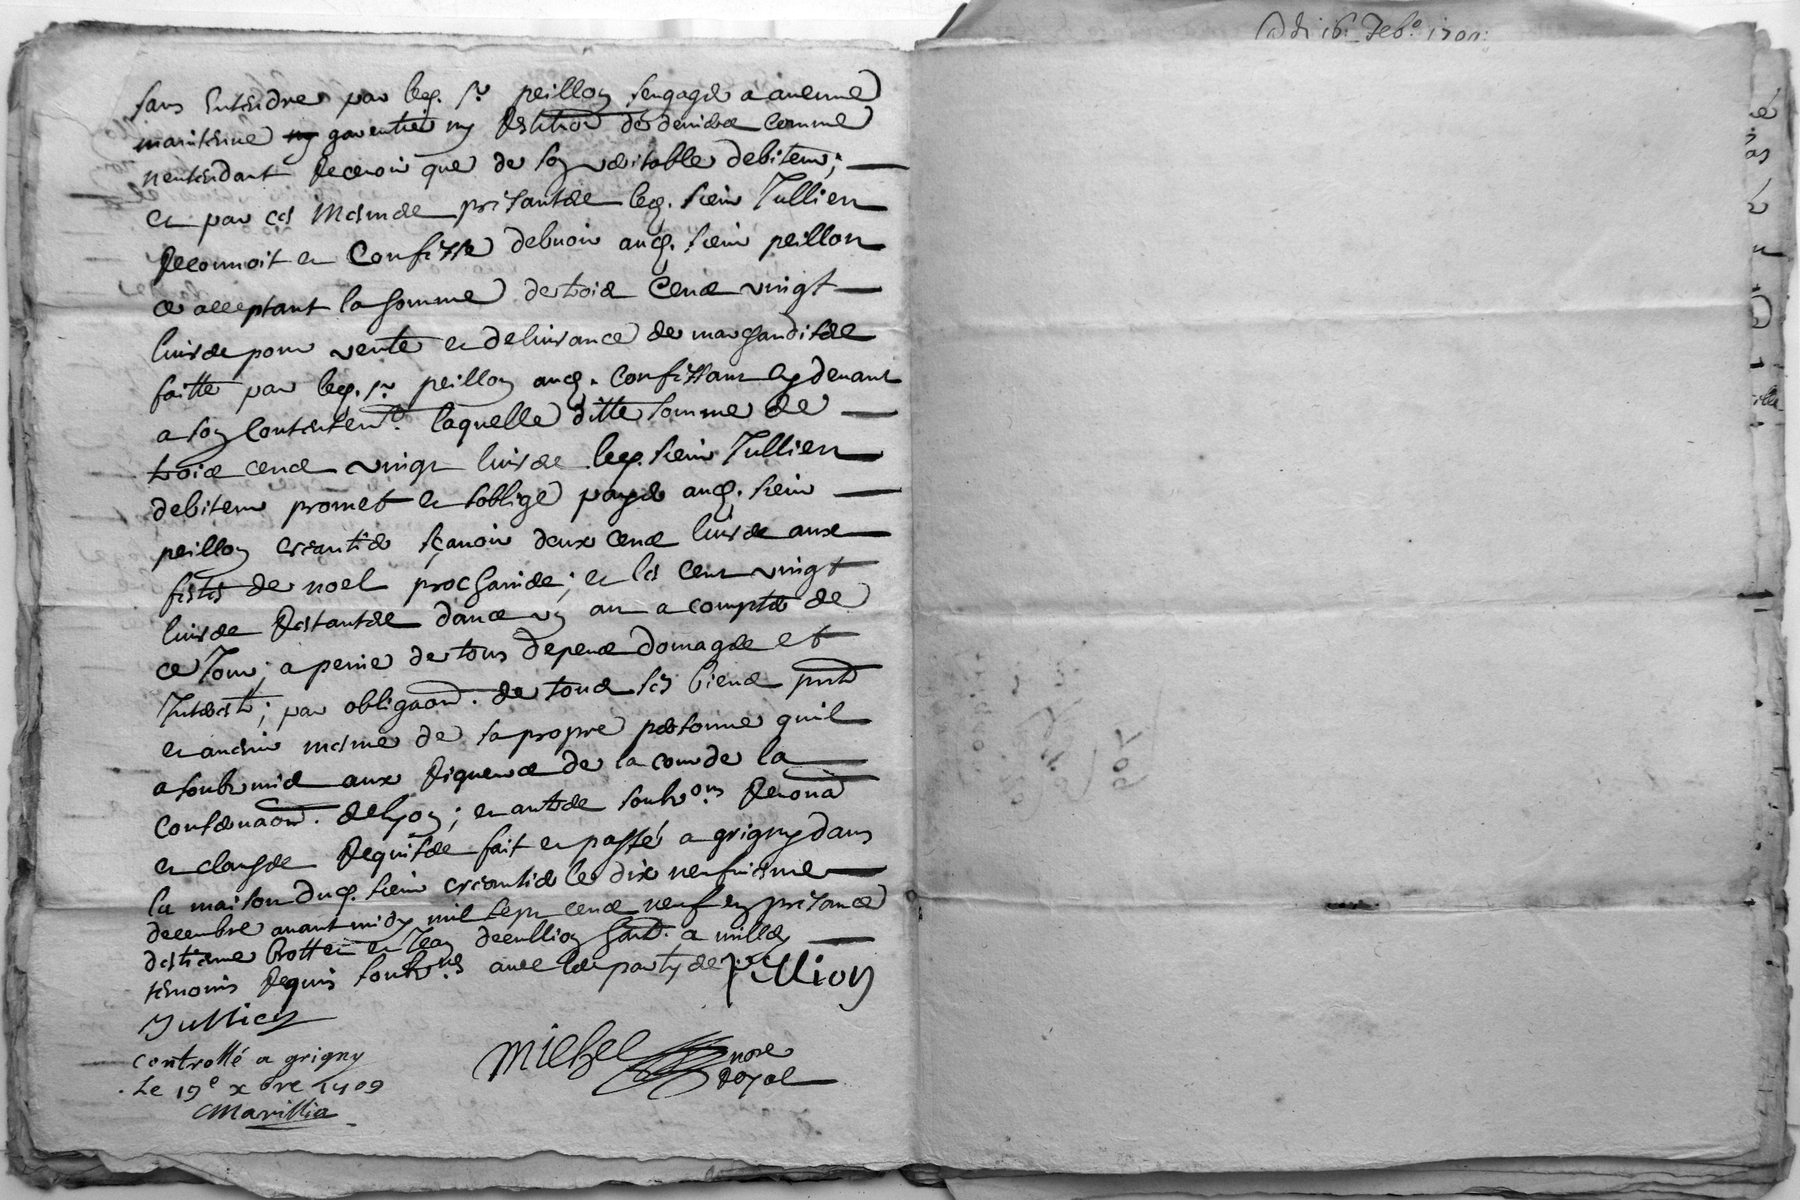 Adi 16. Feb.o 1701:
sans entendre par led. sr peillon sengager a aucune
maintenue ny garentie ny restition de deniers comme
nentendant recevoir que de son veritable debiteur;
et par ces mesmes presantes led. sieur Jullien
reconnoit et confesse debvoir aud. sieur peillon
ce acceptant la somme de trois cens vingt
livres pour vente et delivrance de marchandises
faitte par led. sr peillon aud. confessant cy devant
a son contentemt. laquelle ditte somme de
trois cens vingt livres led. sieur Jullien
debiteur promet et soblige payer aud. sieur
peillon creantier sçavoir deux cens livres aux
festes de noel prochaines; et les cent vingt
livres restantes dans un an a compter de
ce Jour; a peine de tous depens domages et
Interests; par obligaon. de tous ses biens pnts
et avenir mesme de sa propre personne quil
a soubzmis aux rigueurs de la cour de la
conservaon. de lyon; et autres soubzons renons
et clauses requises fait et passé a grigny dans
la maison dud. sieur creantier le dix neufviesme
decembre avant midy mil sept cens neuf en presance
destienne et Jean a millery
temoins requis soubznes avec les partyes peillion
Jullien
controllé a grigny
Le 19e xbre 1709
Marillia
Michel nore
royal